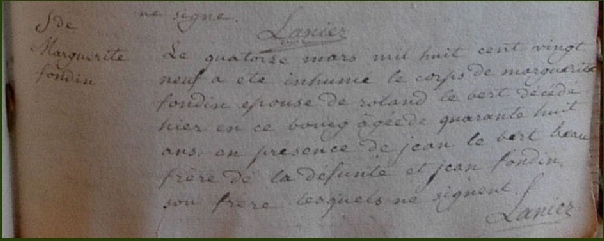 ne signe.
Lanier
S. de
Marguerite
fondin
Le quatorse mars mil huit cent vingt
neuf a été inhumé le corps de marguerite
fondin epouse de roland le bert décédé
hier en ce bourg âgéede quarante huit
ans en presence de jean le bert beau
frère de la défunte et jean fondin
son frere lesquels ne signent
Lanier